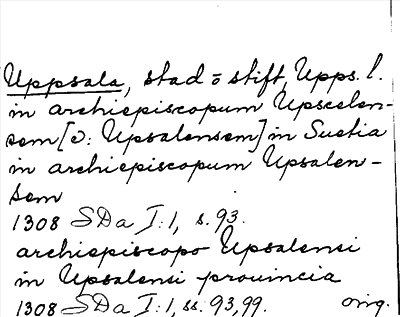 Uppsala, stad o stift, Upps. l.
in archiepiscopum Upscelen-
sem [ɔ: Upsalensem] in Suetia
in archiepiscopum Upsalen-
sem
1308 SDa I:1, s. 93.
archiepiscopo Upsalensi
in Upsalensi prouincia
1308 SDa I:1, ss. 93, 99. orig.